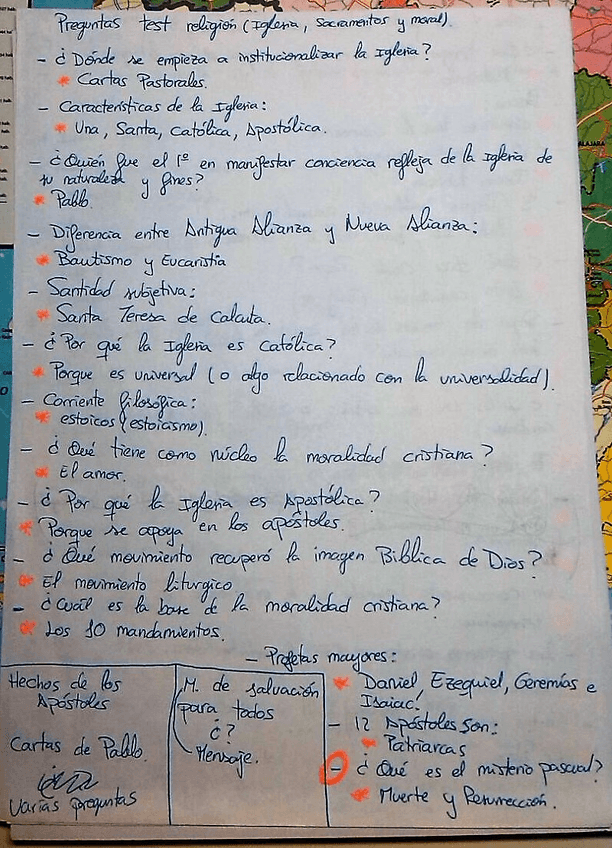 Preguntas test religión (Iglesia, Sacramentos y moral).
- ¿Dónde se empieza a institucionalizar la Iglesia?
* Cartas Pastorales.
- Características de la Iglesia:
* Una, Santa, Católica, Apostólica.
- ¿Quién fue el 1º en manifestar conciencia refleja de la Iglesia de
su naturaleza y fines?
* Pablo
- Diferencia entre Antigua Alianza y Nueva Alianza:
* Bautismo y Eucaristía
- Santidad subjetiva:
* Santa Teresa de Calcuta.
- ¿Por qué la Iglesia es Católica?
* Porque es universal (o algo relacionado con la universalidad).
- Corriente filosófica:
* estoicos (estoicismo).
- ¿Qué tiene como núcleo la moralidad cristiana?
* El amor.
- ¿Por qué la Iglesia es Apostólica?
* Porque se apoya en los apóstoles.
- ¿Qué movimiento recuperó la imagen Bíblica de Dios?
* El movimiento litúrgico
- ¿Cuál es la base de la moralidad cristiana?
* Los 10 mandamientos.
- Profetas mayores:
* Daniel, Ezequiel, Geremías e
Isaias!
- 12 Apóstoles son:
* Patriarcas
- ¿Qué es el misterio pascual?
* Muerte y Resurrección.
Hechos de los
Apóstoles
Cartas de Pablo.
Varias preguntas
M. de salvación
para todos
¿?
Mensaje.